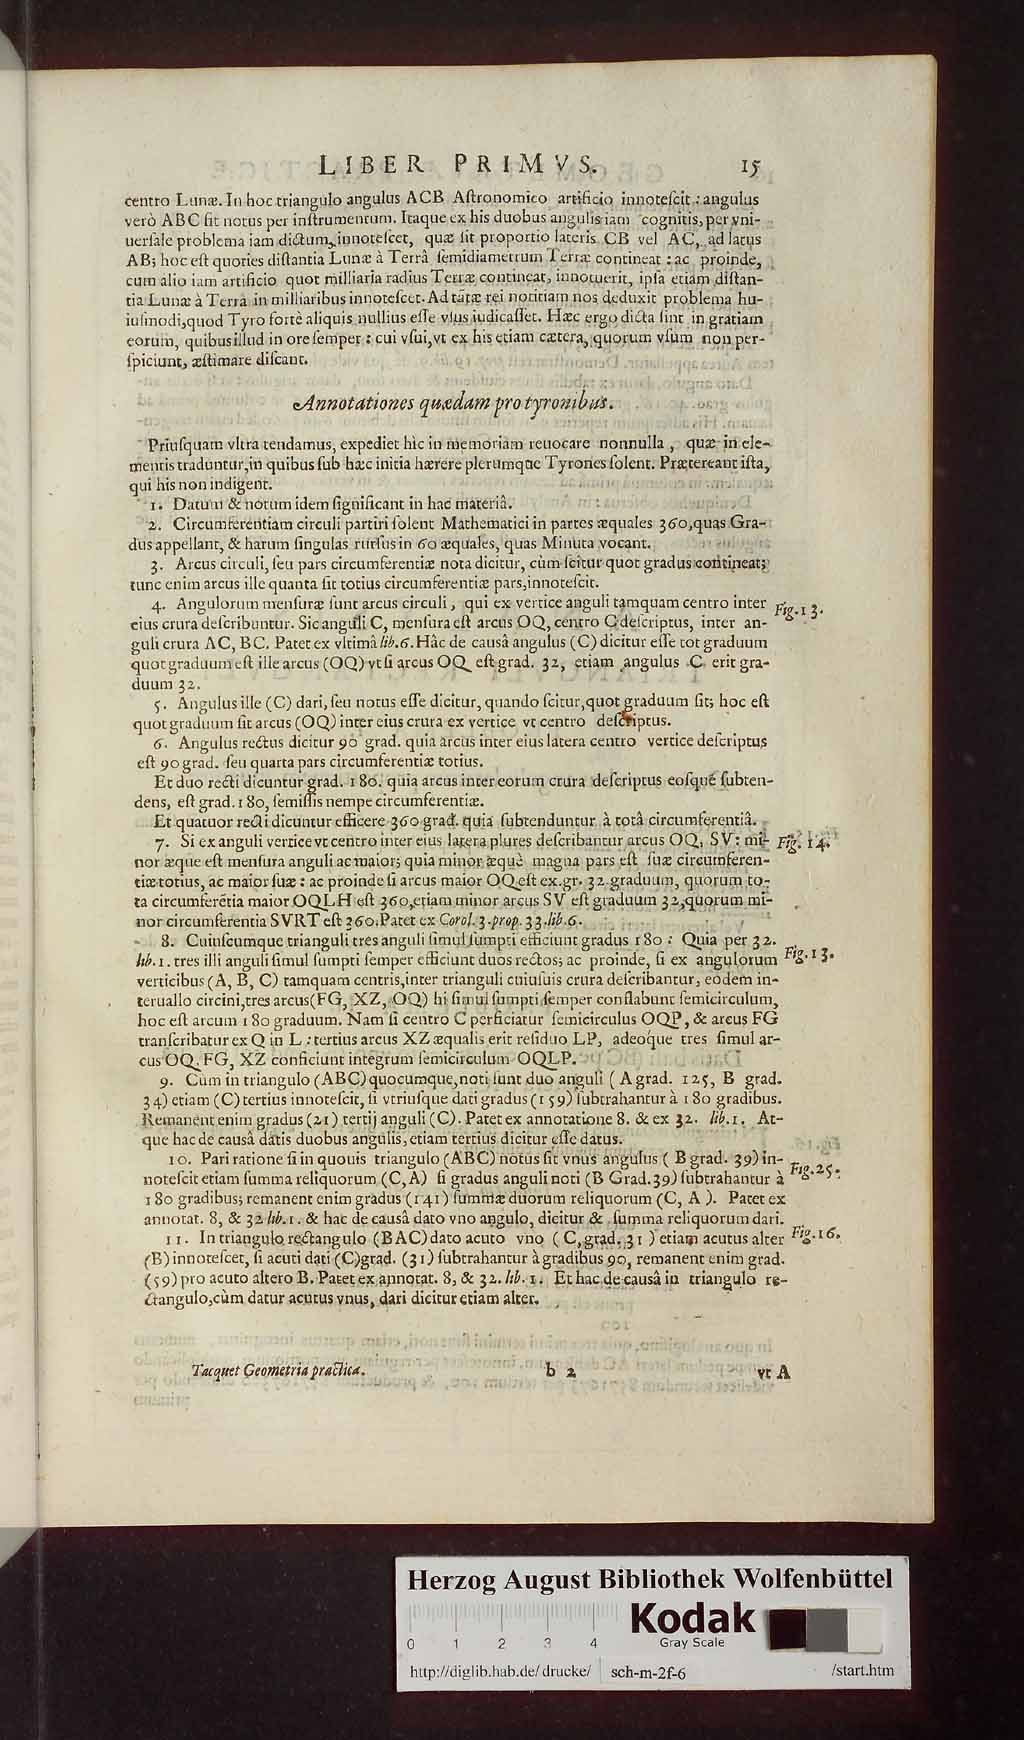 LIBER PRIMVS. 15
centro Lunæ. In hoc triangulo angulus ACB Aſtronomico artificio innoteſcit : angulus
verò ABC ſit notus per inſtrumentum. Itaque ex his duobus angulis iam cognitis, per vni-
uerſale problema iam dictum, innoteſcet, quæ ſit proportio lateris CB vel AC, ad latus
AB; hoc eſt quoties diſtantia Lunæ à Terrâ ſemidiametrum Terræ contineat : ac proinde,
cum alio iam artificio quot milliaria radius Terræ contineat, innotuerit, ipſa etiam diſtan-
tia Lunæ à Terrâ in milliaribus innoteſcet. Ad tātæ rei notitiam nos deduxit problema hu-
iuſmodi,quod Tyro fortè aliquis nullius eſſe vſus iudicaſſet. Hæc ergo dicta ſint in gratiam
eorum, quibus illud in ore ſemper : cui vſui,vt ex his etiam cætera, quorum vſum non per-
ſpiciunt, æſtimare diſcant.
Annotationes quædam pro tyronibus.
Priuſquam vltra tendamus, expediet hìc in memoriam reuocare nonnulla , quæ in ele-
mentis traduntur,in quibus ſub hæc initia hærere plerumque Tyrones ſolent. Prætereant iſta,
qui his non indigent.
1. Datum & notum idem ſignificant in hac materiâ.
2. Circumferentiam circuli partiri ſolent Mathematici in partes æquales 360,quas Gra-
dus appellant, & harum ſingulas rurſus in 60 æquales, quas Minuta vocant.
3. Arcus circuli, ſeu pars circumferentiæ nota dicitur, cùm ſcitur quot gradus contineat;
tunc enim arcus ille quanta ſit totius circumferentiæ pars,innoteſcit.
4. Angulorum menſuræ ſunt arcus circuli , qui ex vertice anguli tamquam centro inter Fig. 13.
eius crura deſcribuntur. Sic anguli C, menſura eſt arcus OQ, centro C deſcriptus, inter an-
guli crura AC, BC. Patet ex vltimâ lib. 6. Hâc de causâ angulus (C) dicitur eſſe tot graduum
quot graduum eſt ille arcus (OQ) vt ſi arcus OQ eſt grad. 32, etiam angulus C erit gra-
duum 32.
5. Angulus ille (C) dari, ſeu notus eſſe dicitur, quando ſcitur,quot graduum ſit; hoc eſt
quot graduum ſit arcus (OQ) inter eius crura ex vertice vt centro deſcriptus.
6. Angulus rectus dicitur 90 grad. quia arcus inter eius latera centro vertice deſcriptus
eſt 90 grad. ſeu quarta pars circumferentiæ totius.
Et duo recti dicuntur grad. 180. quia arcus inter eorum crura deſcriptus eoſque ſubten-
dens, eſt grad. 180, ſemiſſis nempe circumferentiæ.
Et quatuor recti dicuntur efficere 360 grad. quia ſubtenduntur à totâ circumferentiâ.
7. Si ex anguli vertice vt centro inter eius latera plures deſcribantur arcus OQ, SV: mi- Fig. 14.
nor æque eſt menſura anguli ac maior; quia minor æquè magna pars eſt ſuæ circumferen-
tiæ totius, ac maior ſuæ : ac proinde ſi arcus maior OQ eſt ex. gr. 32 graduum, quorum to-
ta circumferētia maior OQLH eſt 360,etiam minor arcus SV eſt graduum 32,quorum mi-
nor circumferentia SVRT eſt 360. Patet ex Corol. 3. prop. 33. lib. 6.
8. Cuiuſcumque trianguli tres anguli ſimul ſumpti efficiunt gradus 180 : Quia per 32.
lib. 1. tres illi anguli ſimul ſumpti ſemper efficiunt duos rectos; ac proinde, ſi ex angulorum Fig. 13.
verticibus (A, B, C) tamquam centris,inter trianguli cuiuſuis crura deſcribantur, eodem in-
teruallo circini,tres arcus(FG, XZ, OQ) hi ſimul ſumpti ſemper conſlabunt ſemicirculum,
hoc eſt arcum 180 graduum. Nam ſi centro C perficiatur ſemicirculus OQP, & arcus FG
tranſcribatur ex Q in L : tertius arcus XZ æqualis erit reſiduo LP, adeoque tres ſimul ar-
cus OQ, FG, XZ conficiunt integrum ſemicirculum OQLP.
9. Cùm in triangulo (ABC) quocumque,noti ſunt duo anguli ( A grad. 125, B grad.
34) etiam (C) tertius innoteſcit, ſi vtriuſque dati gradus (159) ſubtrahantur à 180 gradibus.
Remanent enim gradus (21) tertij anguli (C). Patet ex annotatione 8. & ex 32. lib. 1. At-
que hac de causâ datis duobus angulis, etiam tertius dicitur eſſe datus.
10. Pari ratione ſi in quouis triangulo (ABC) notus ſit vnus angulus ( B grad. 39) in- Fig. 25.
noteſcit etiam ſumma reliquorum (C, A) ſi gradus anguli noti (B Grad. 39) ſubtrahantur à
180 gradibus; remanent enim gradus (141) ſummæ duorum reliquorum (C, A ). Patet ex
annotat. 8, & 32 lib. 1. & hac de causâ dato vno angulo, dicitur & ſumma reliquorum dari.
11. In triangulo rectangulo (BAC) dato acuto vno ( C, grad. 31 ) etiam acutus alter Fig. 16.
(B) innoteſcet, ſi acuti dati (C)grad. (31) ſubtrahantur à gradibus 90, remanent enim grad.
(59) pro acuto altero B. Patet ex annotat. 8, & 32. lib. 1. Et hac de causâ in triangulo re-
ctangulo,cùm datur acutus vnus, dari dicitur etiam alter.
Tacquet Geometria practica. b 2 vt A
Herzog August Bibliothek Wolfenbüttel
Kodak
Gray Scale
0 1 2 3 4
http://diglib.hab.de/drucke/ sch-m-2f-6 /start.htm